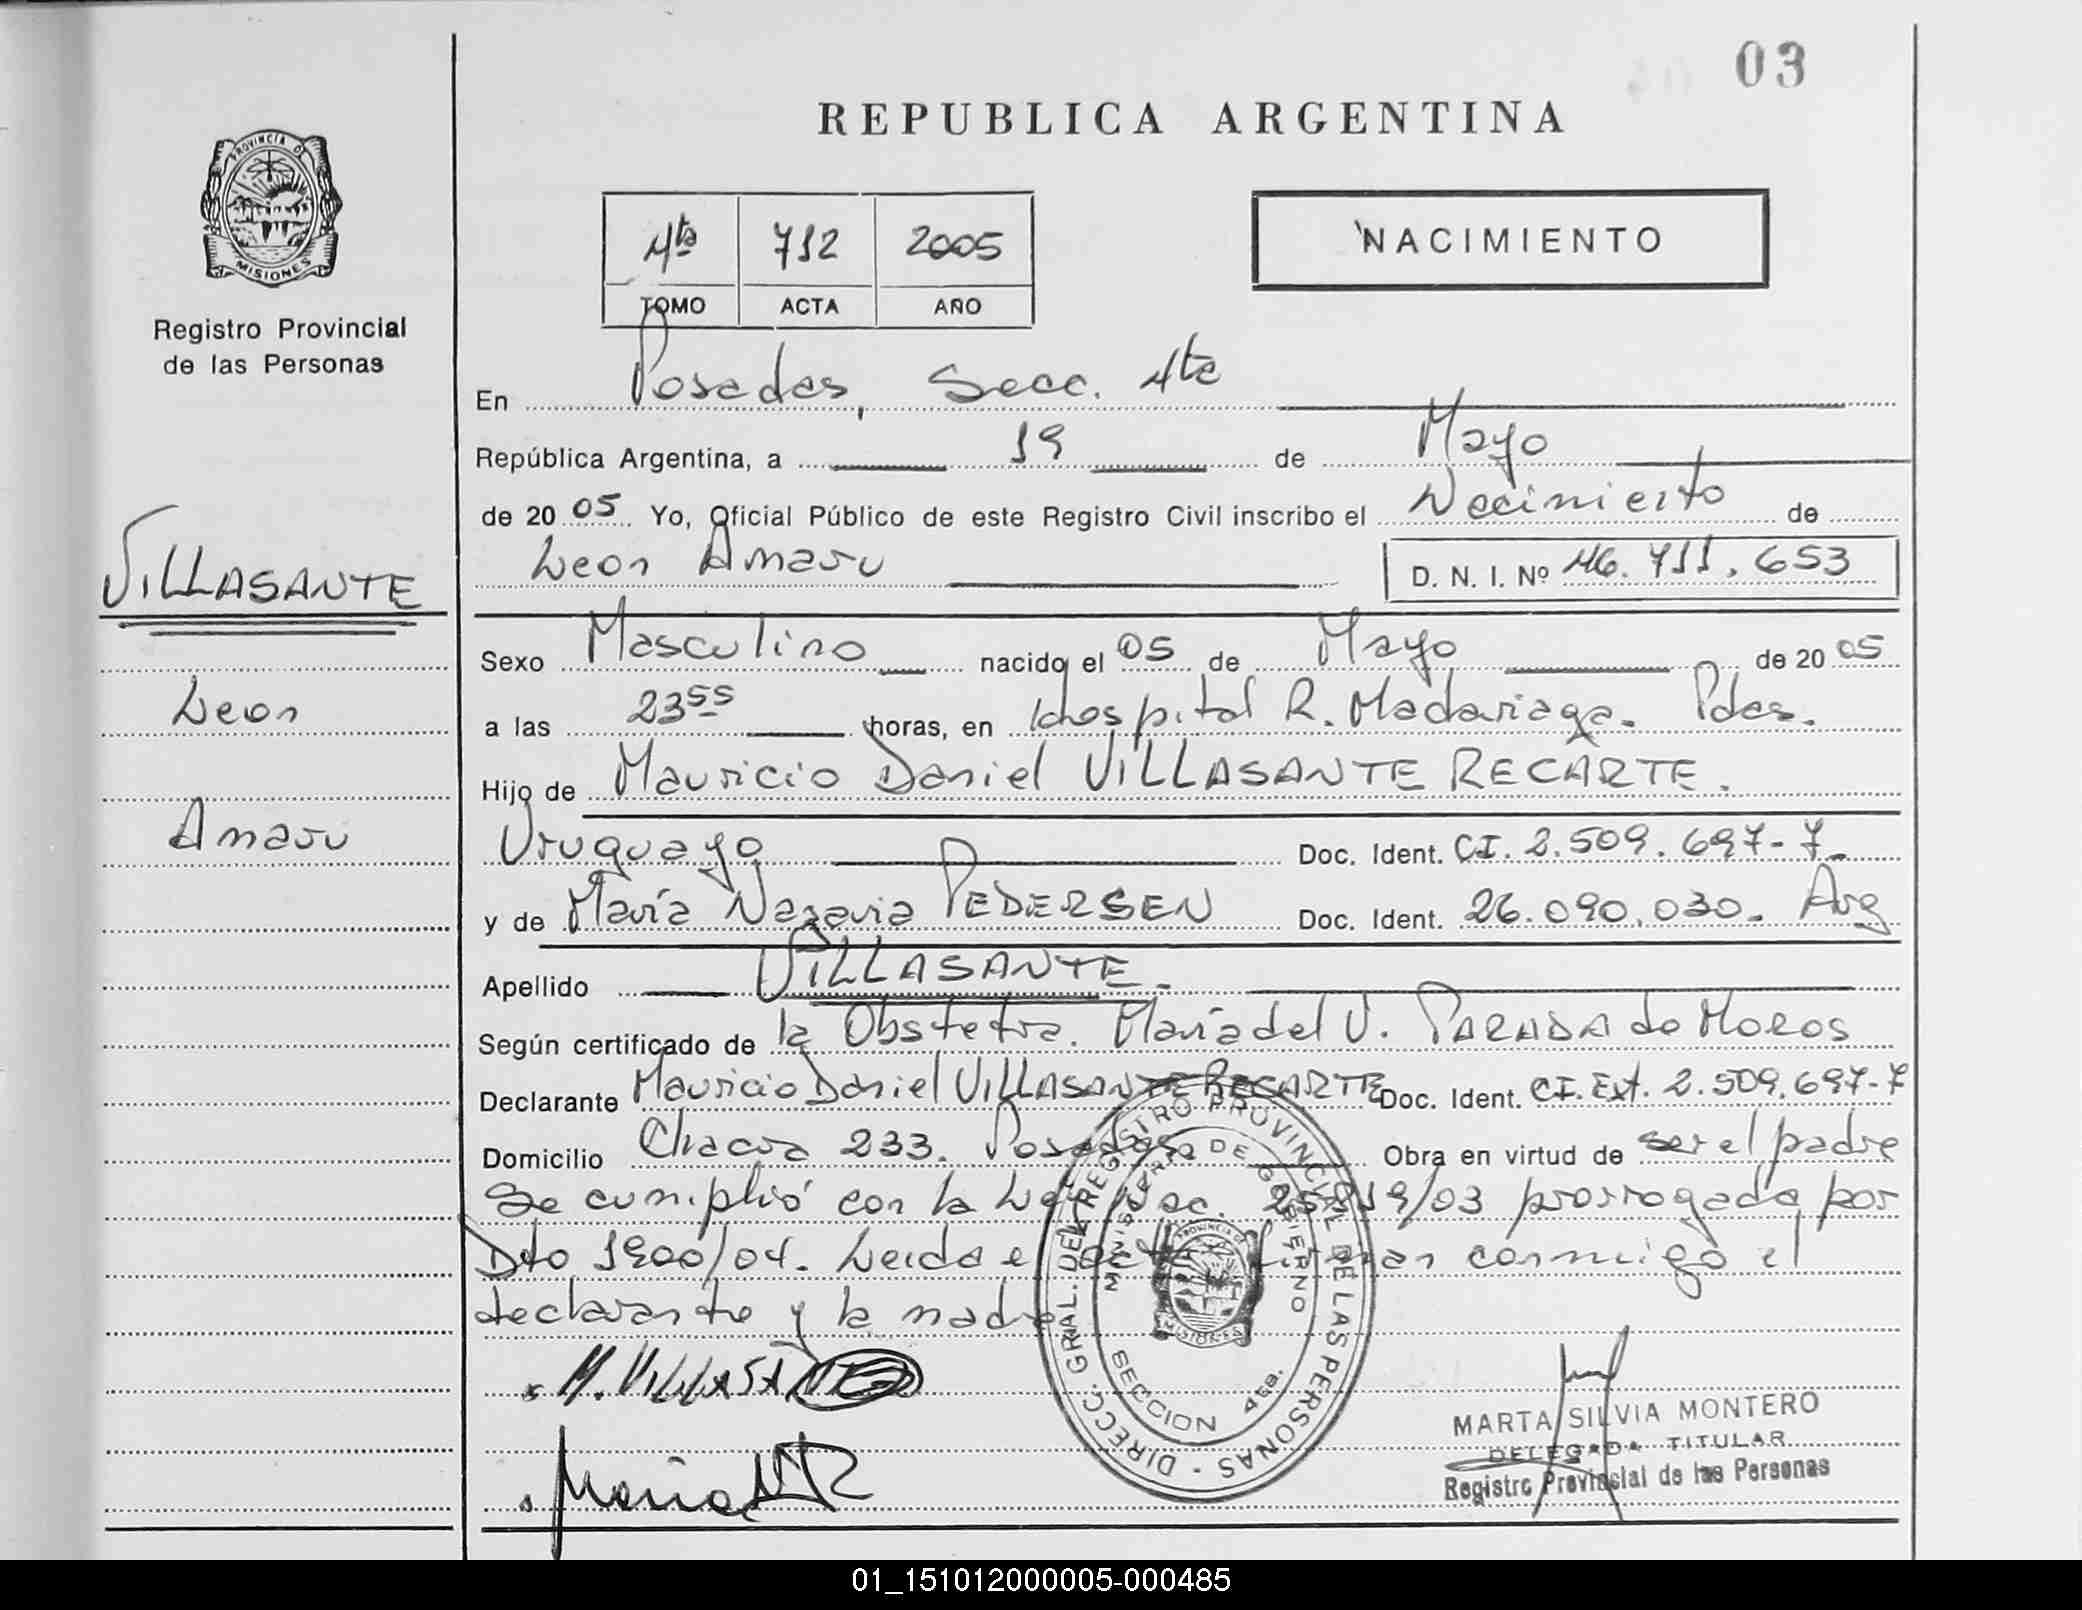 03
REPUBLICA ARGENTINA
PROVINCIA DE
MISIONES
Registro Provincial
de las Personas
4ta 712 2005
TOMO ACTA AÑO
NACIMIENTO
En Posadas, Secc. 4ta
República Argentina, a 19 de Mayo
de 20 05 Yo, Oficial Público de este Registro Civil inscribo el Nacimiento de
Leon Amaru D. N. I. Nº 46.711.653
VILLASANTE
Leon
Amaru
Sexo Masculino nacido el 05 de Mayo de 20 05
a las 23 55 horas, en Hospital R. Madariaga. Pdas.
Hijo de Mauricio Daniel VILLASANTE RECARTE.
Uruguayo Doc. Ident. CI. 2.509.697-7
y de María Nazaria PEDERSEN Doc. Ident. 26.090.030. Arg
Apellido VILLASANTE.
Según certificado de la Obstetra. María del V. PARADA de MOROS
Declarante Mauricio Daniel VILLASANTE RECARTE Doc. Ident. CI. Ext. 2.509.697-7
Domicilio Chacra 233. Posadas Obra en virtud de ser el padre
Se cumplió con la Ley Nac. 25819/03 prorrogada por
Dto 1900/04. Leida el acta firman conmigo el
declarante y la madre
DIRECC. GRAL. DEL REGISTRO PROVINCIAL DE LAS PERSONAS
MINISTERIO DE GOBIERNO
PROVINCIA DE
MISIONES
SECCION 4ta.
M. VILLASANTE
María
MARTA SILVIA MONTERO
DELEGADA TITULAR
Registro Provincial de las Personas
01_151012000005-000485